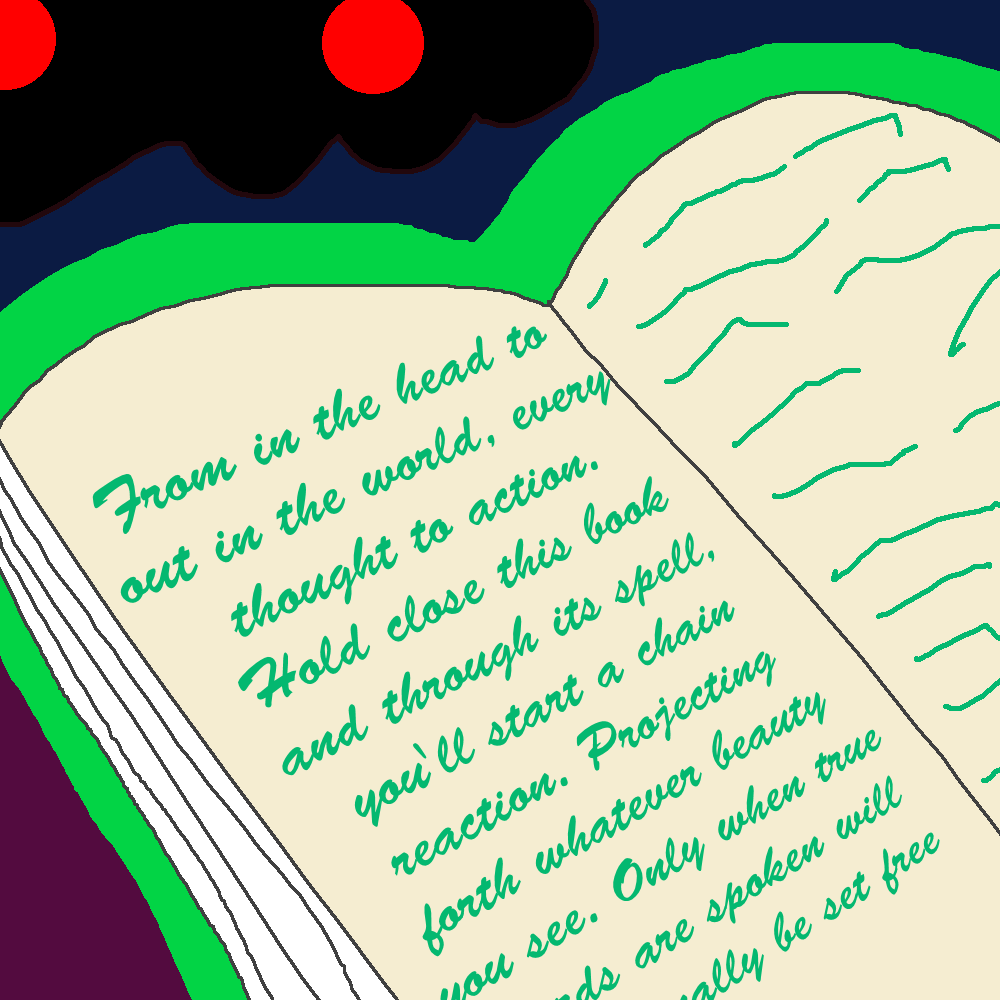 From in the head to
out in the world, every
thought to action.
Hold close this book
and through its spell,
you'll start a chain
reaction. Projecting
forth whatever beauty
you see. Only when true
are spoken will
be set free